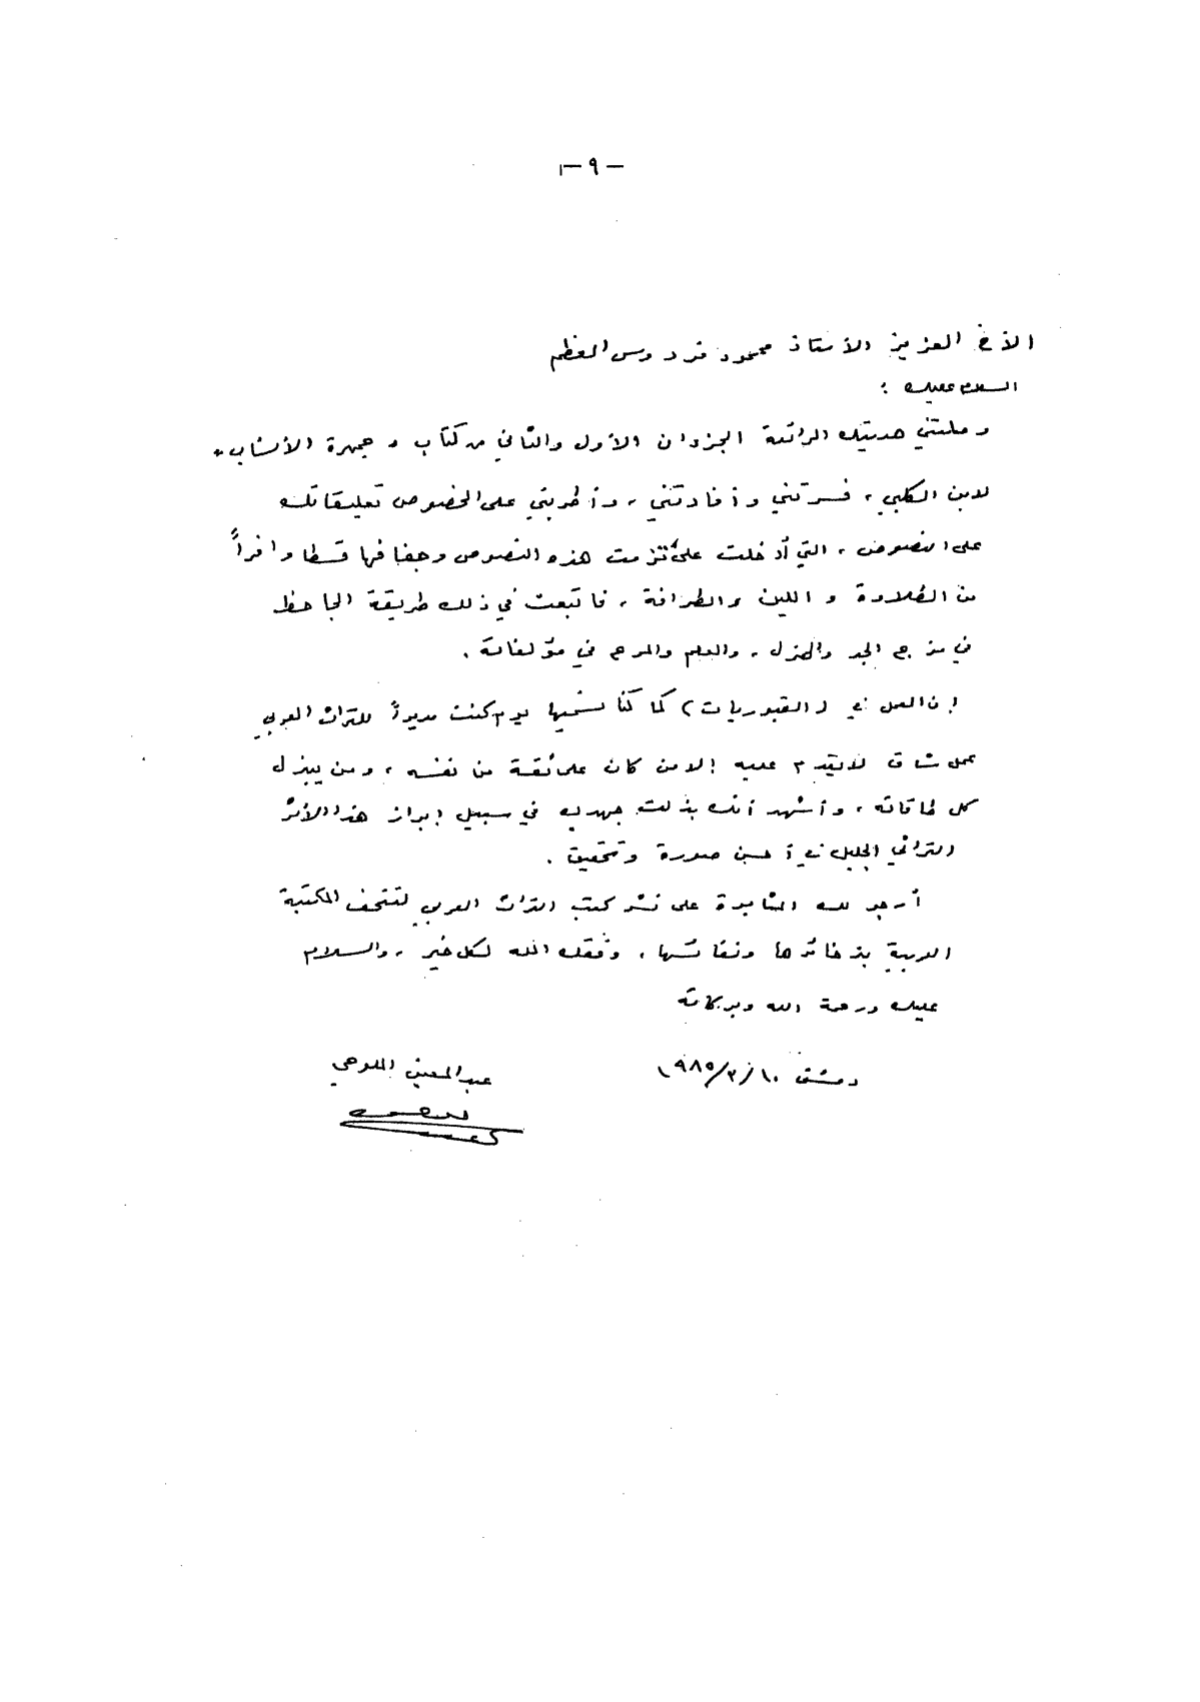 — ٩ —
الأخ العزيز الأستاذ محمود فردوس العظم
السلام عليك :
وصلتني هديتك الرائعة الجزءان الأول والثاني من كتاب « جمهرة الأنساب »
لابن الكلبي ، فسرتني وأفادتني ، وأطربتني على الخصوص تعليقاتك
على النصوص ، التي أدخلت على تزمت هذه النصوص وجفافها قسطا وافراً
من الطلاوة و اللين والطرافة ، فاتبعت في ذلك طريقة الجاحظ
في مزج الجد والهزل ، والعلم والمرح في مؤلفاته .
إن العمل في ( القبوريات ) كما كنا نسميها يوم كنت مديراً للتراث العربي
عمل شاق لا يقدم عليه إلا من كان على ثقة من نفسه ، ومن يبذل
كل طاقاته ، وأشهد أنك بذلت جهدك في سبيل إبراز هذا الأثر
التراثي الجليل في أحسن صورة وتحقيق .
أرجو لك المثابرة على نشر كتب التراث العربي لتتحف المكتبة
العربية بذخائرها ونفائسها ، وفقك الله لكل خير ، والسلام
عليك ورحمة الله وبركاته
دمشق ١٠/٣/١٩٨٥
عبد المعين الملوحي